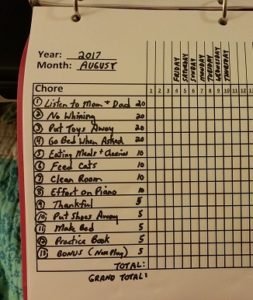 Year: 2017
Month: AUGUST
FRIDAY SATURDAY SUNDAY MONDAY TUESDAY WEDNESDAY THURSDAY
Chore 1 2 3 4 5 6 7 8 9 10 11 12 13
1 Listen to Mom + Dad 20
2 No Whining 20
3 Put Toys Away 20
4 Go Bed When Asked 20
5 Eating Meals + 10
6 Feed Cats 10
7 Clean Room 10
8 Effort on Piano 10
9 Thankful 5
10 Put Shoes Away 5
11 Make Bed 5
12 Practice Book 5
13 BONUS (Nice Play) 5
TOTAL:
GRAND TOTAL: